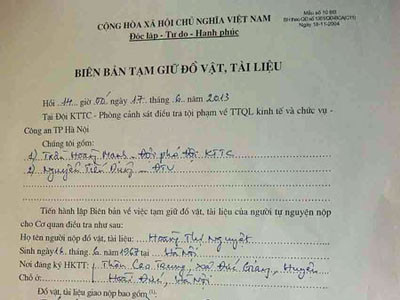 CỘNG HÒA XÃ HỘI CHỦ NGHĨA VIỆT NAM
Độc lập - Tự do - Hạnh phúc
Mẫu số 10 BB
BH theo QĐ số 1351/QĐ-BCA(C11)
Ngày 18-11-2004
BIÊN BẢN TẠM GIỮ ĐỒ VẬT, TÀI LIỆU
Hồi 14 giờ 00 ngày 17 tháng 6 năm 2013
Tại Đội KTTC - Phòng cảnh sát điều tra tội phạm về TTQL kinh tế và chức vụ -
Công an TP Hà Nội
Chúng tôi gồm:
1) Trần Hoàng Manh - Đội phó đội KTTC
2) Nguyễn Tiến Dũng - ĐTV
Tiến hành lập Biên bản về việc tạm giữ đồ vật, tài liệu của người tự nguyện nộp
cho Cơ quan điều tra như sau:
Họ tên người nộp đồ vật, tài liệu: Hoàng Thị Nguyệt
Sinh ngày 16 tháng 6 năm 1967 tại Hà Nội
Nơi đăng ký HKTT: Thôn Cao Trung, xã Đức Giang, Huyện
Chỗ ở: Hoài Đức, Hà Nội
Đồ vật, tài liệu giao nộp bao gồm (1):